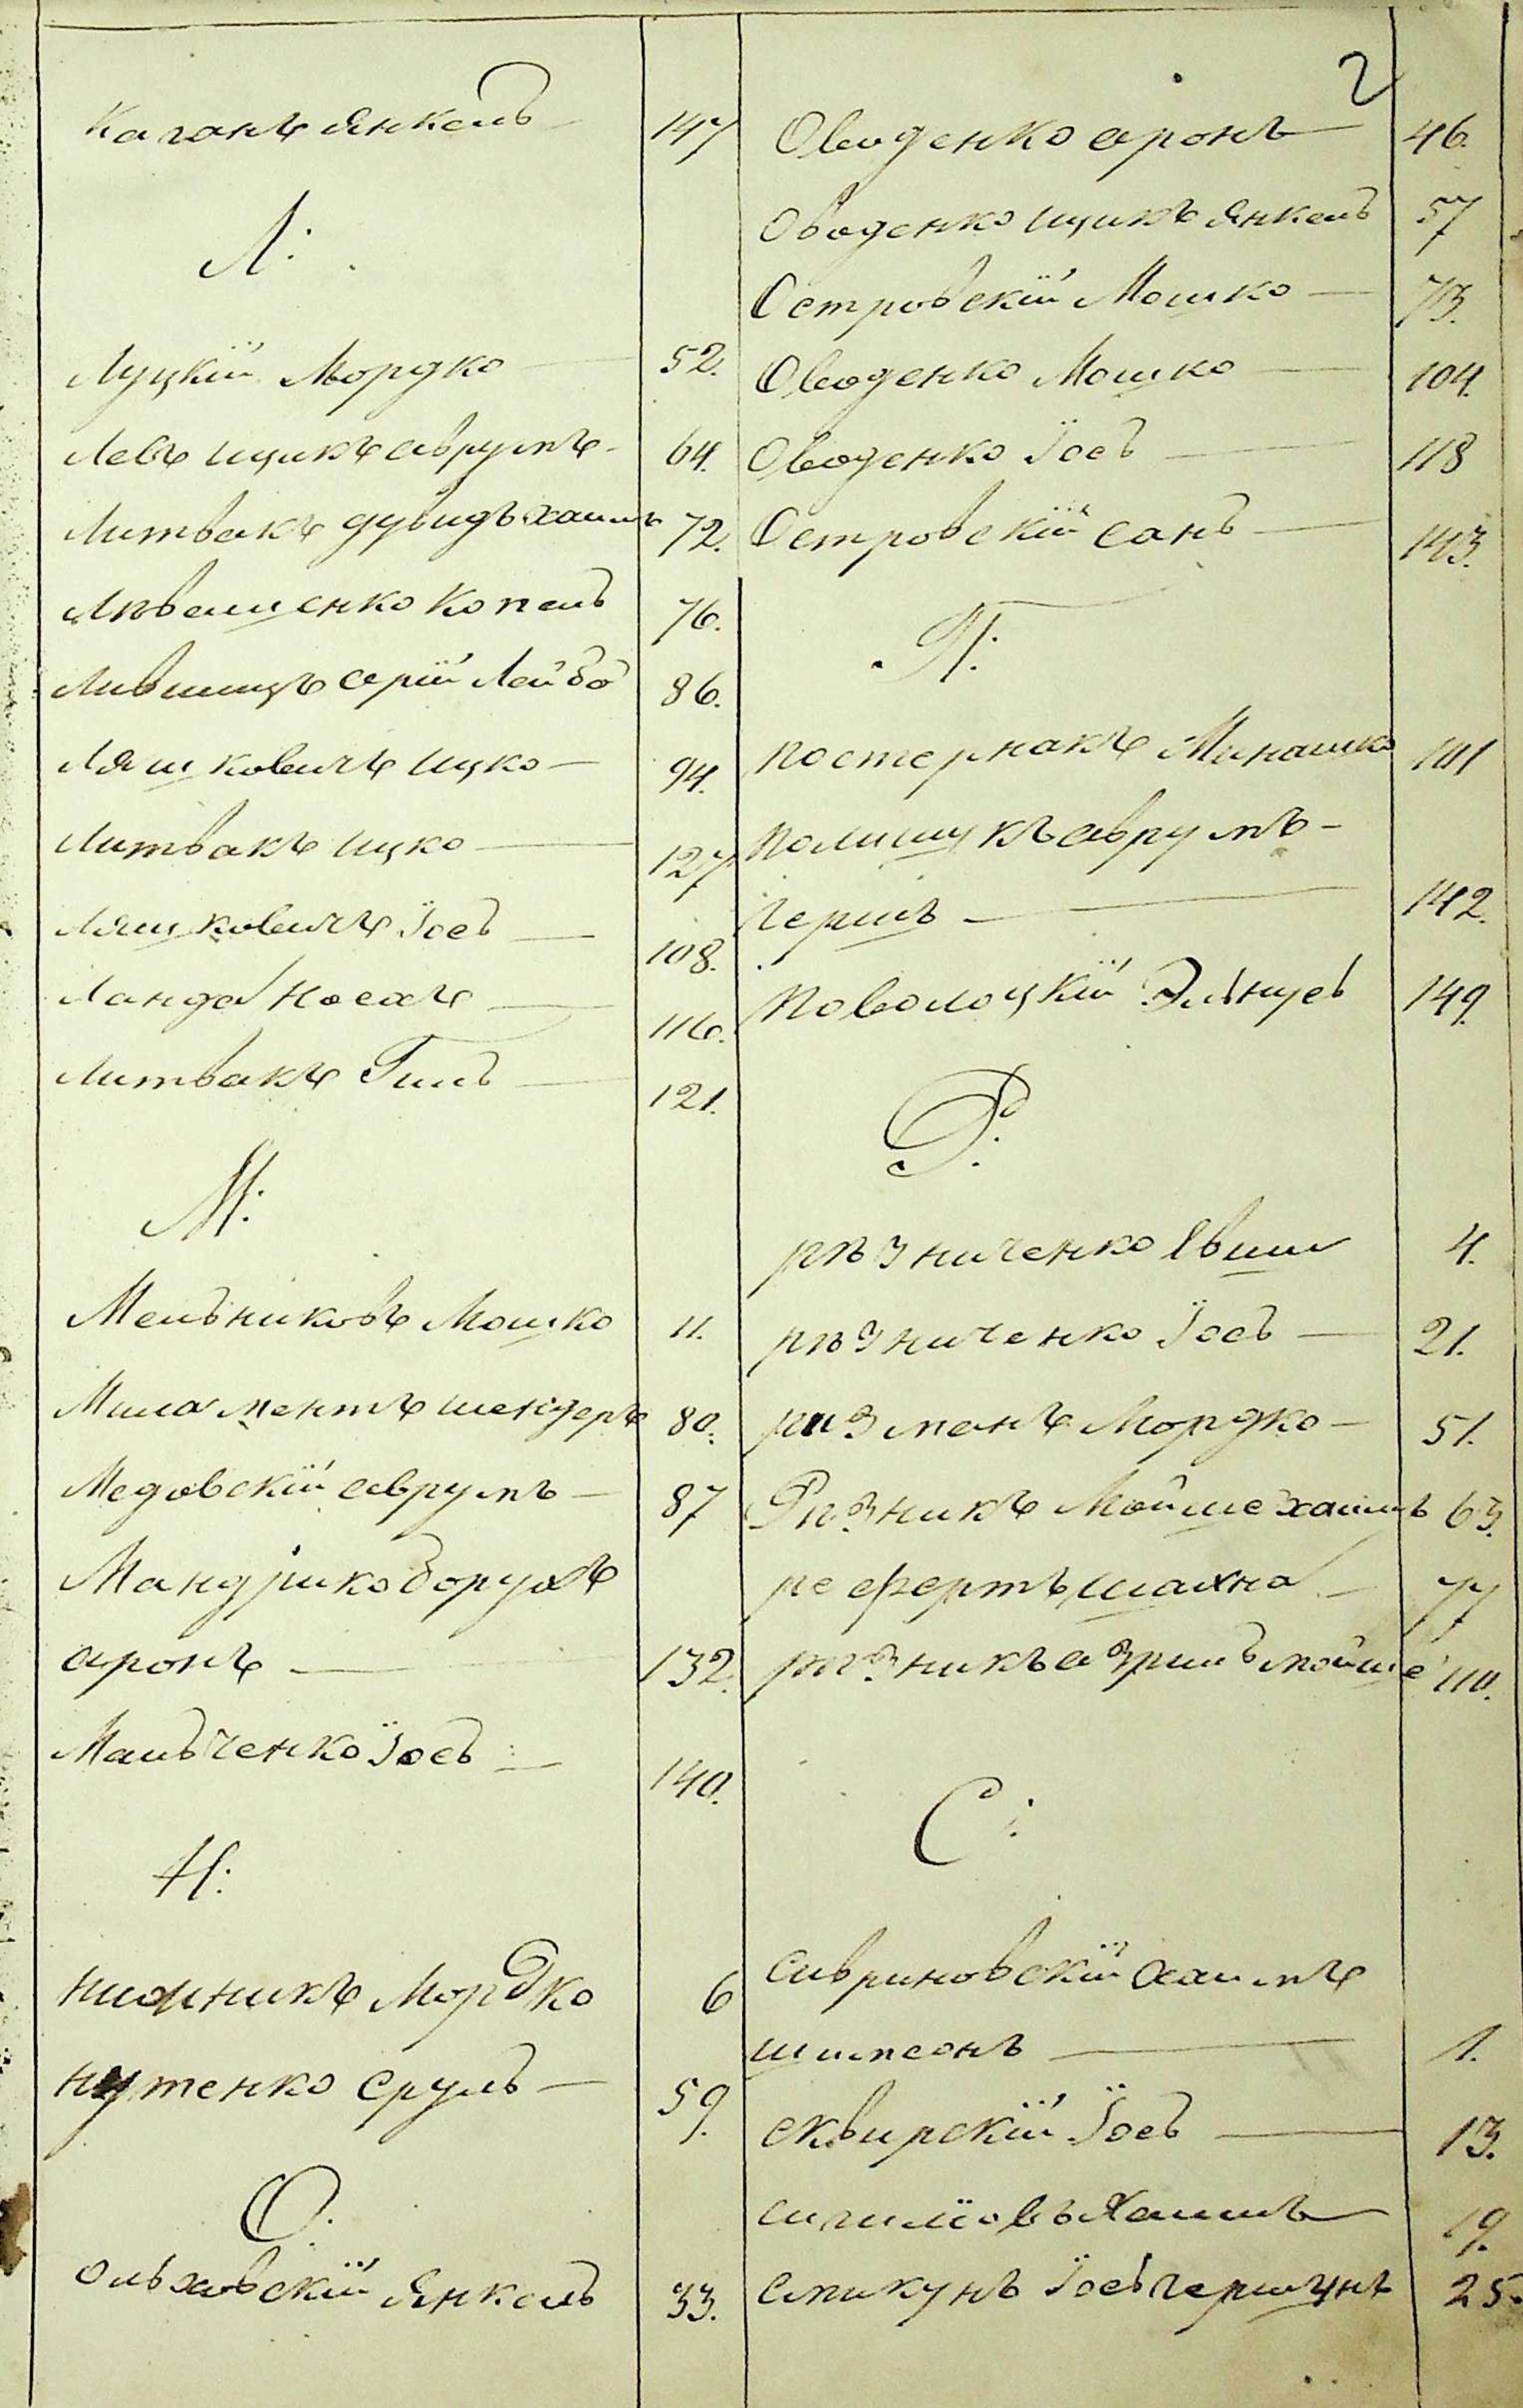 2
Каганъ Янкель 147
Л:
Луцкій Мордко 52.
Левъ Ицикъ Аврумъ 64.
Литвакъ Дувидъ Хаимъ 72.
Лъвешенко Копель 76.
Лившицъ Арій Лейба 86.
Ляшковичъ Ицко 94.
Литвакъ Ицко 127
Ляшковичъ Іось 108.
Ланда Носахъ 116.
Литвакъ Гиль 121.
М:
Мельниковъ Мошко 11.
Миламентъ Шендеръ 80.
Медовскій Аврумъ 87
Мандрико Борухъ
Аронъ 132.
Мальченко Іось 140.
Н:
Мордко 6
Нутенко Сруль 59.
О.
Ольховскій Янкель 33.
Оводенко Аронъ 46.
Оводенко Ицикъ Янкель 57
Островскій Мошко 73.
Оводенко Мошко 104.
Оводенко Іось 118
Островскій Сань 143.
П:
Постернакъ Минашко 101
Полищукъ Аврумъ
Гершъ 142.
Поволоцкій 149.
Р:
Рѣзниченко Евши 4.
Рѣзниченко Іось 21.
Ризманъ Мордко 51.
Рѣзникъ Мойше Хаимъ 63.
Рефертъ Шахна 77
Рѣзникъ Азриль Мойше 110.
С:
Сивриновскій Хаимъ
Шимсонъ 1.
Сквирскій Іось 13.
Хаимъ 19.
Смикунъ Іось Гершунъ 25.